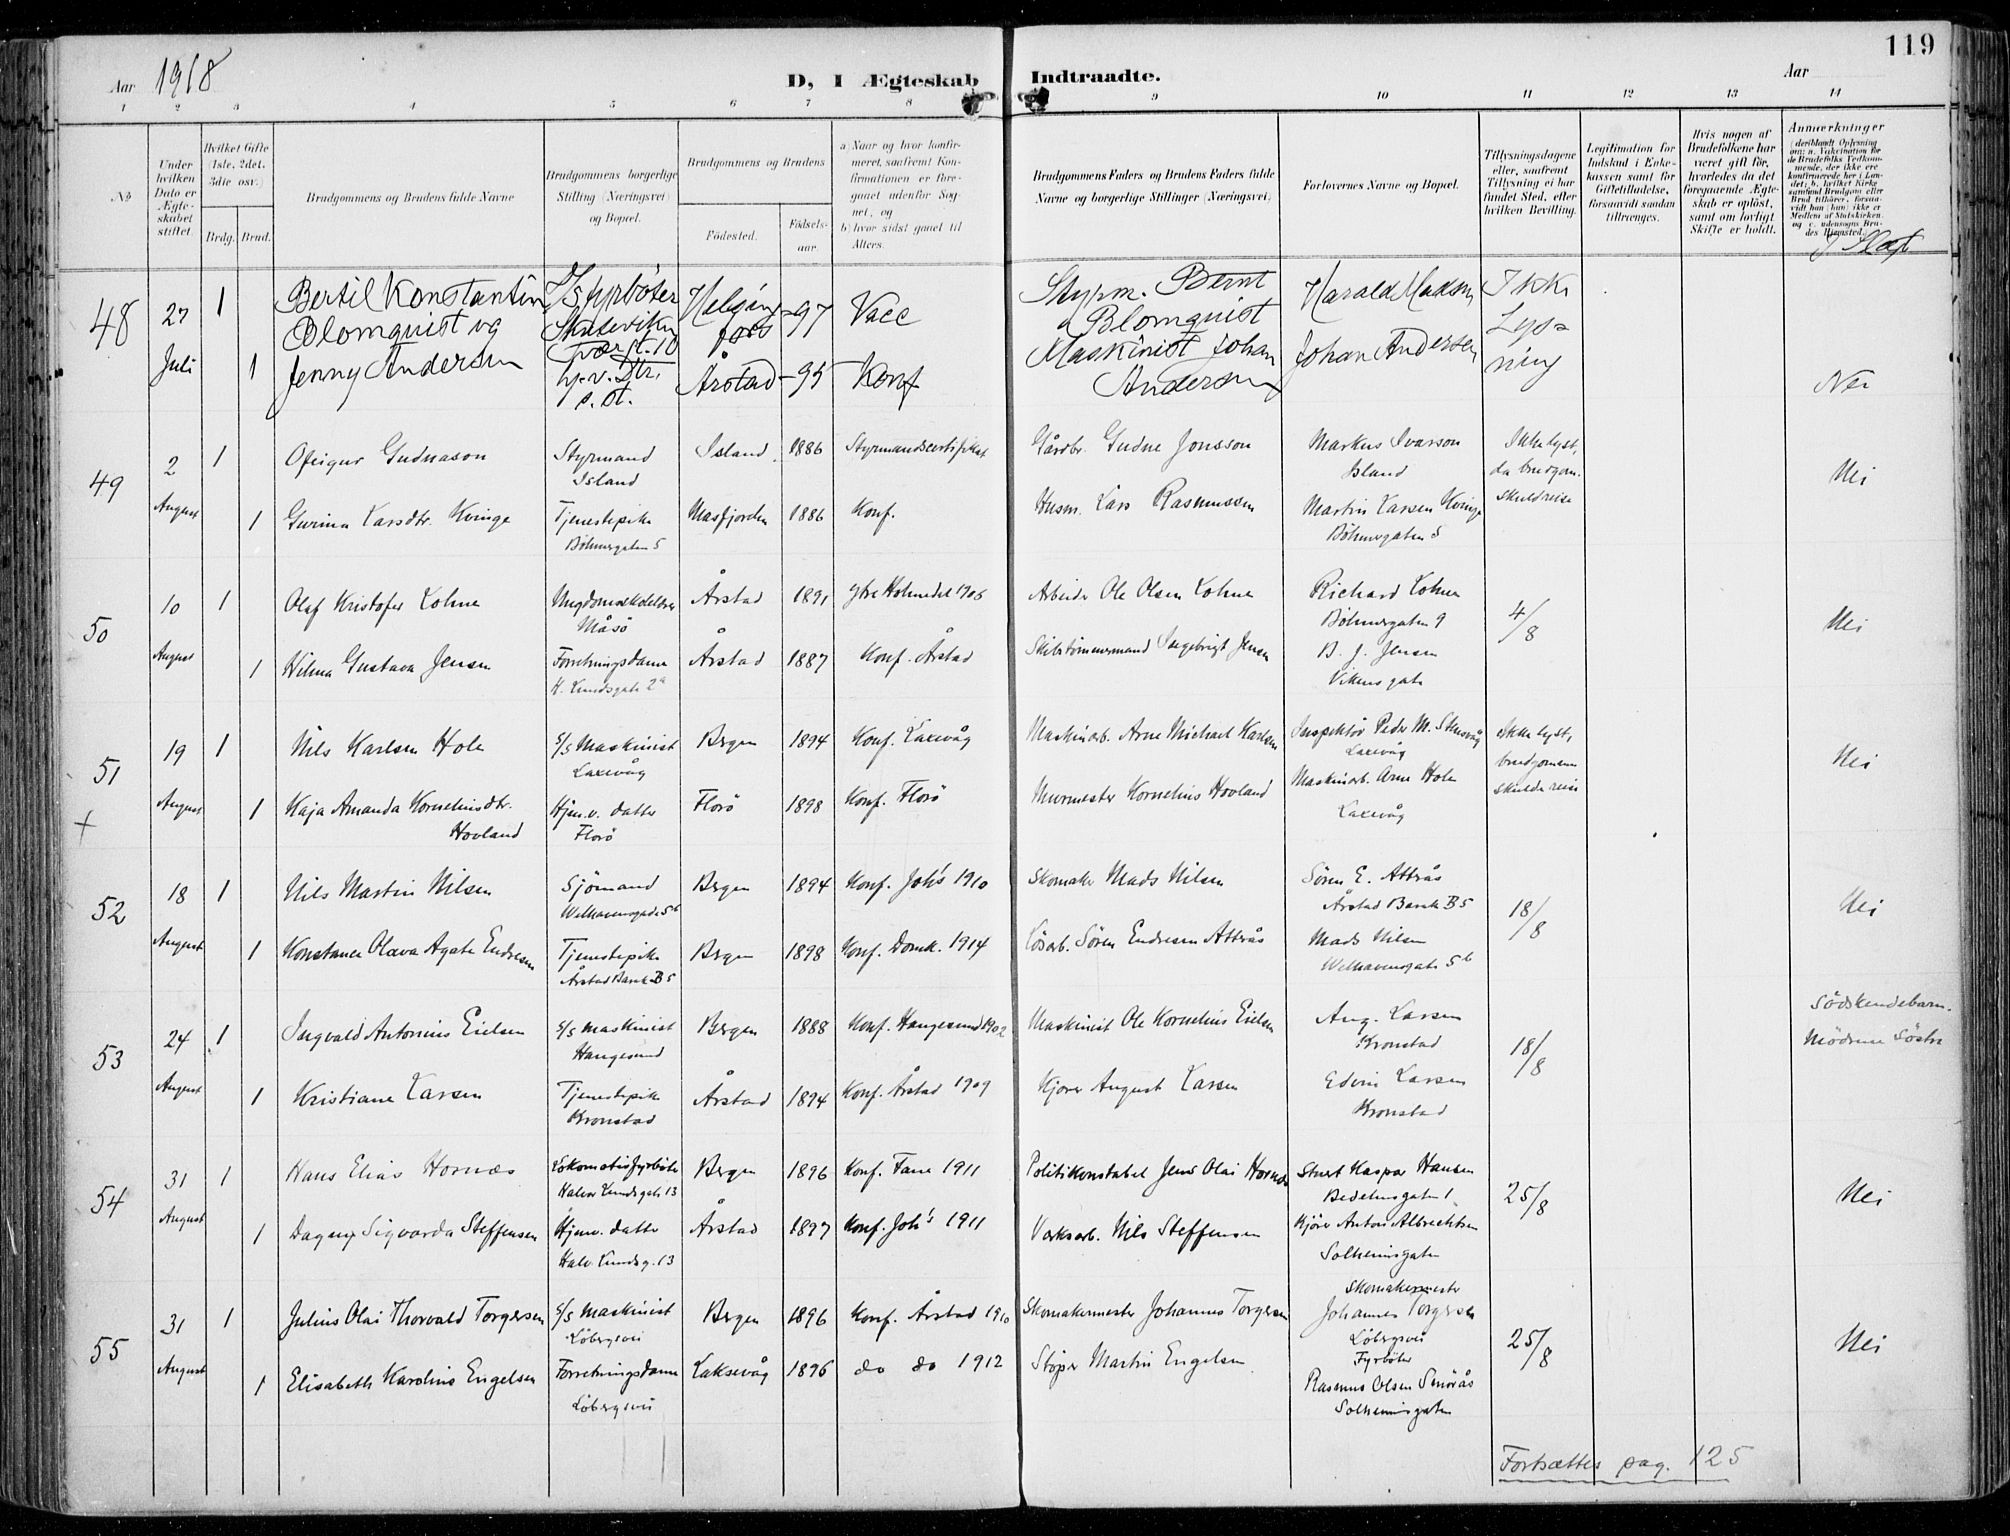 119
Aar 1918
D, I Ægteskab Indtraadte.
Aar
1 2 3 4 5 6 7 8 9 10 11 12 13 14
No
Under hvilken Dato er Ægteskabet stiftet.
Hvilket Gifte (1ste, 2det, 3die osv.)
Brdg. Brud.
Brudgommens og Brudens fulde Navne
Brudgommens borgerlige Stilling (Næringsvei) og Bopæl.
Brudgommens og Brudens
Fødested.
Fødselsaar.
a) Naar og hvor konfirmeret, saafremt Konfirmationen er foregaaet udenfor Sognet, og
b) hvor sidst gaaet til Alters.
Brudgommens Faders og Brudens Faders fulde Navne og borgerlige Stillinger (Næringsvei)
Forlovernes Navne og Bopæl.
Tillysningsdagene eller, saafremt Tillysning ei har fundet Sted, efter hvilken Bevilling.
Legitimation for Indskud i Enkekassen samt for Giftetilladelse, forsaavidt saadan tiltrænges.
Hvis nogen af Brudefolkene har været gift før, hvorledes da det foregaaende Ægteskab er opløst, samt om lovligt Skifte er holdt.
Anmærkninger
I Slægt
48
27 Juli
1
Bertil Konstantin
Blomquist og
S/S fyrbøter
Skuteviken
Tverst. 10
Helsingfors
97
Vacc
Styrm. Bernt
Blomquist
Harald Madsen
Ikke
Lysning
1
Jenny Andersen
hj.v. Dtr.
s. st.
Årstad
95
Konf
Maskinist Johan
Andersen
Johan Andersen
Nei
49
2 August
1
Ofeigur Gudnason
Styrmand
Island
Island
1886
Styrmandscertifikat
Gårdbr. Gudne Jonsson
Markus Ivarson
Island
Ikke lyst,
da brudgom.
skuld reise
Nei
1
Gurina Larsdtr. Kvinge
Tjenestepike
Böhmergaten 5
Masfjorden
1886
Konf.
Husm. Lars Rasmussen
Martin Larsen Kvinge
Böhmergaten 5
50
10 August
1
Olaf Kristofer Lohne
Ungdomsskolelærer
Måsö
Årstad
1891
ytre Holmedal 1906
Arbeider Ole Olsen Lohne
Richard Lohne
Böhmergaten 9
4/8
Nei
1
Hilma Gustava Jensen
Forretningsdame
H. Lundsgate 2a
Årstad
1887
Konf. Årstad
Skibstömmermand Ingebrigt Jensen
B. J. Jensen
Vikensgate
51
+
19 August
1
Nils Karlsen Hole
S/S Maskinist
Laxevåg
Bergen
1894
Konf. Laxevåg
Maskinarb. Arne Michael Karlsen
Inspektör Peder M. Stensvåg
Laxevåg
Ikke lyst,
brudgommen
skulde reise
Nei
1
Kaja Amanda Korneliusdtr.
Hovland
Hjem.v. datter
Florö
Florö
1898
Konf. Florö
Murmester Kornelius Hovland
Maskinarb. Arne Hole
Laxevåg
52
18 August
1
Nils Martin Nilsen
Sjömand
Welhavensgate 5b
Bergen
1894
Konf. Joh's 1910
Skomaker Mads Nilsen
Sören E. Attrås
Årstad Barak B5
18/8
Nei
1
Konstance Olava Agate Endresen
Tjenestepike
Årstad Barak B5
Bergen
1898
Konf. Domk. 1914
Lösarb. Sören Endresen Attrås
Mads Nilsen
Welhavensgate 5b
53
24 August
1
Ingvald Antonius Eielsen
S/S maskinist
Haugesund
Bergen
1888
Konf. Haugesund 1902
Maskinist Ole Kornelius Eielsen
Aug. Larsen
Kronstad
18/8
Södskendebarn.
Mödrene Söstre
1
Kristiane Larsen
Tjenestepike
Kronstad
Årstad
1894
Konf. Årstad 1909
Kjörer August Larsen
Edvin Larsen
Kronstad
54
31 August
1
Hans Elias Hornæs
Lokomotivfyrböter
Halvor Lundsgate 13
Bergen
1896
Konf. Fane 1911
Politikonstabel Jens Olai Hornæs
Stuert Kaspar Hansen
Bedehusgaten 1
25/8
Nei
1
Dagny Sigvarda Steffensen
Hjemv. datter
Halv. Lundsg. 13
Årstad
1897
Konf. Joh's 1911
Verksarb. Nils Steffensen
Kjörer Anton Albrechtsen
Solheimsgaten
55
31 August
1
Julius Olai Thorvald Torgersen
S/S maskinist
Löbergsvei
Bergen
1896
Konf. Årstad 1910
Skomakermester Johannes Torgersen
Skomakermester
Johannes Torgersen
Löbergsvei
25/8
Nei
1
Elisabeth Karoline Engelsen
Forretningsdame
Löbergsvei
Laksevåg
1896
do do 1912
Støper Martin Engelsen
Fyrböter
Rasmus Olsen Smörås
Solheimsgaten
Fortsættes pag. 125